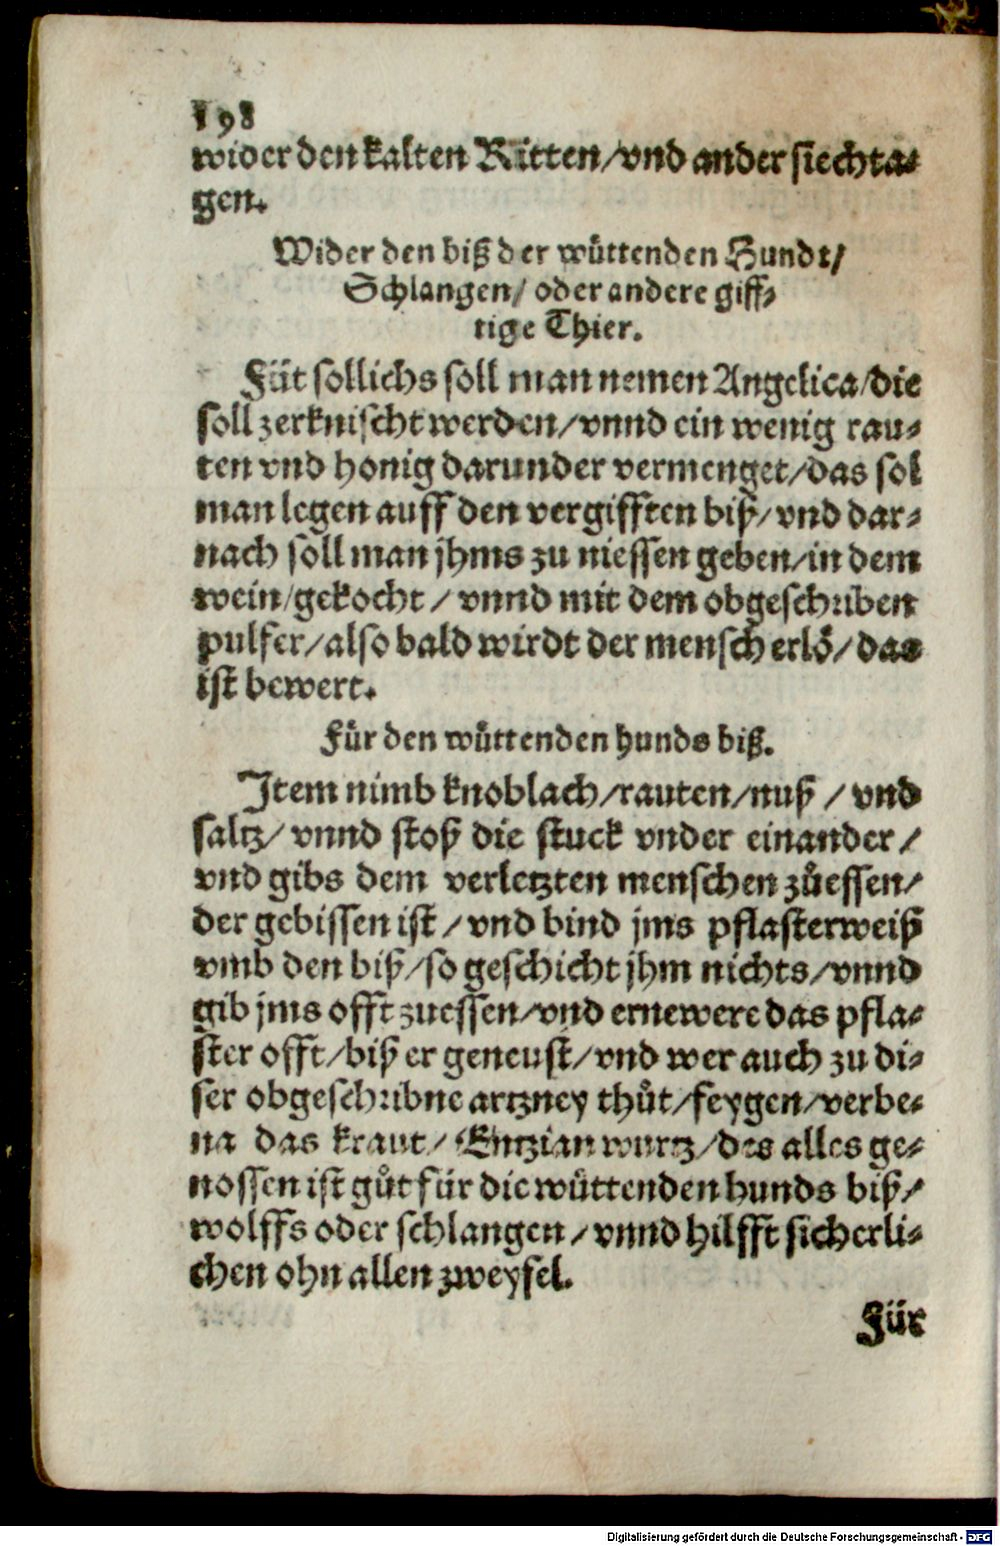 198
wider den kalten Ritten/vnd ander siechta⸗
gen.
Wider den biß der wuͤttenden Hundt/
Schlangen/ oder andere giff⸗
tige Thier.
Fuͤt sollichs soll man nemen Angelica/die
soll zerknischt werden/vnnd ein wenig rau⸗
ten vnd honig darunder vermenget/das sol
man legen auff den vergifften biß/vnd dar⸗
nach soll man jhms zu niessen geben/in dem
wein/gekocht/ vnnd mit dem obgeschriben
pulfer/also bald wirdt der mensch erloͤ/das
ist bewert.
Fuͤr den wuͤttenden hunds biß.
Item nimb knoblach/rauten/nuß / vnd
saltz/ vnnd stoß die stuck vnder einander/
vnd gibs dem verletzten menschen zůessen/
der gebissen ist/vnd bind jms pflasterweiß
vmb den biß/so geschicht jhm nichts/vnnd
gib jms offt zuessen/vnd ernewere das pfla⸗
ster offt/biß er geneust/vnd wer auch zu di⸗
ser obgeschribne artzney thůt/feygen/verbe⸗
na das kraut/ Entzian wurtz/des alles ge⸗
nossen ist gůt für die wuͤttenden hunds biß/
wolffs oder schlangen/vnnd hilfft sicherli⸗
chen ohn allen zweyfel.
Für
Digitalisierung gefördert durch die Deutsche Forschungsgemeinschaft - DFG